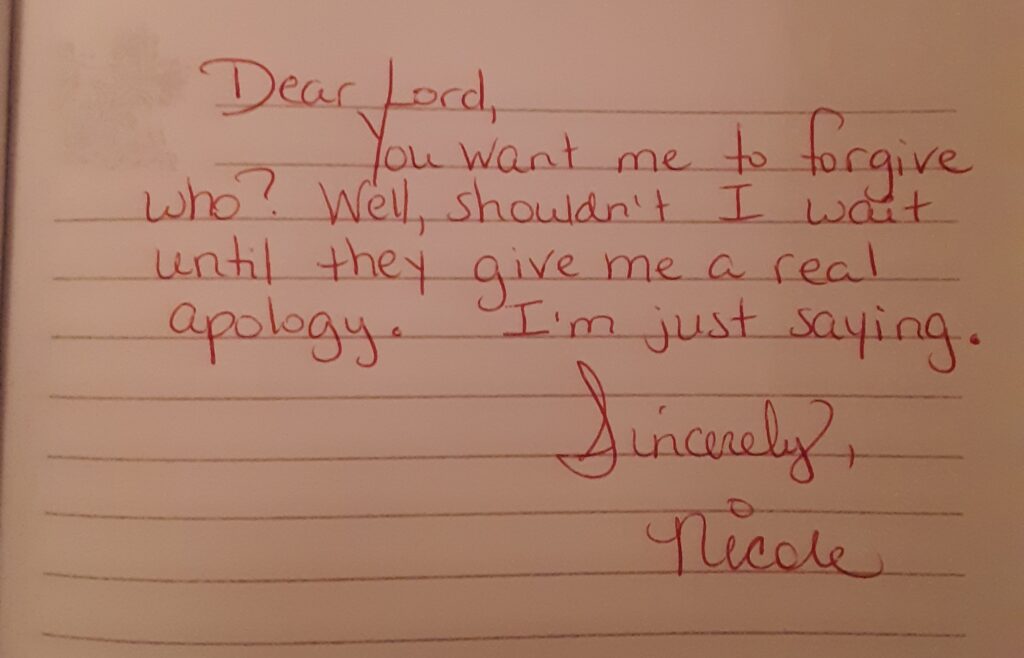 Dear Lord,
You want me to forgive
who? Well, shouldn't I wait
until they give me a real
apology. I'm just saying.
Sincerely,
Nicole